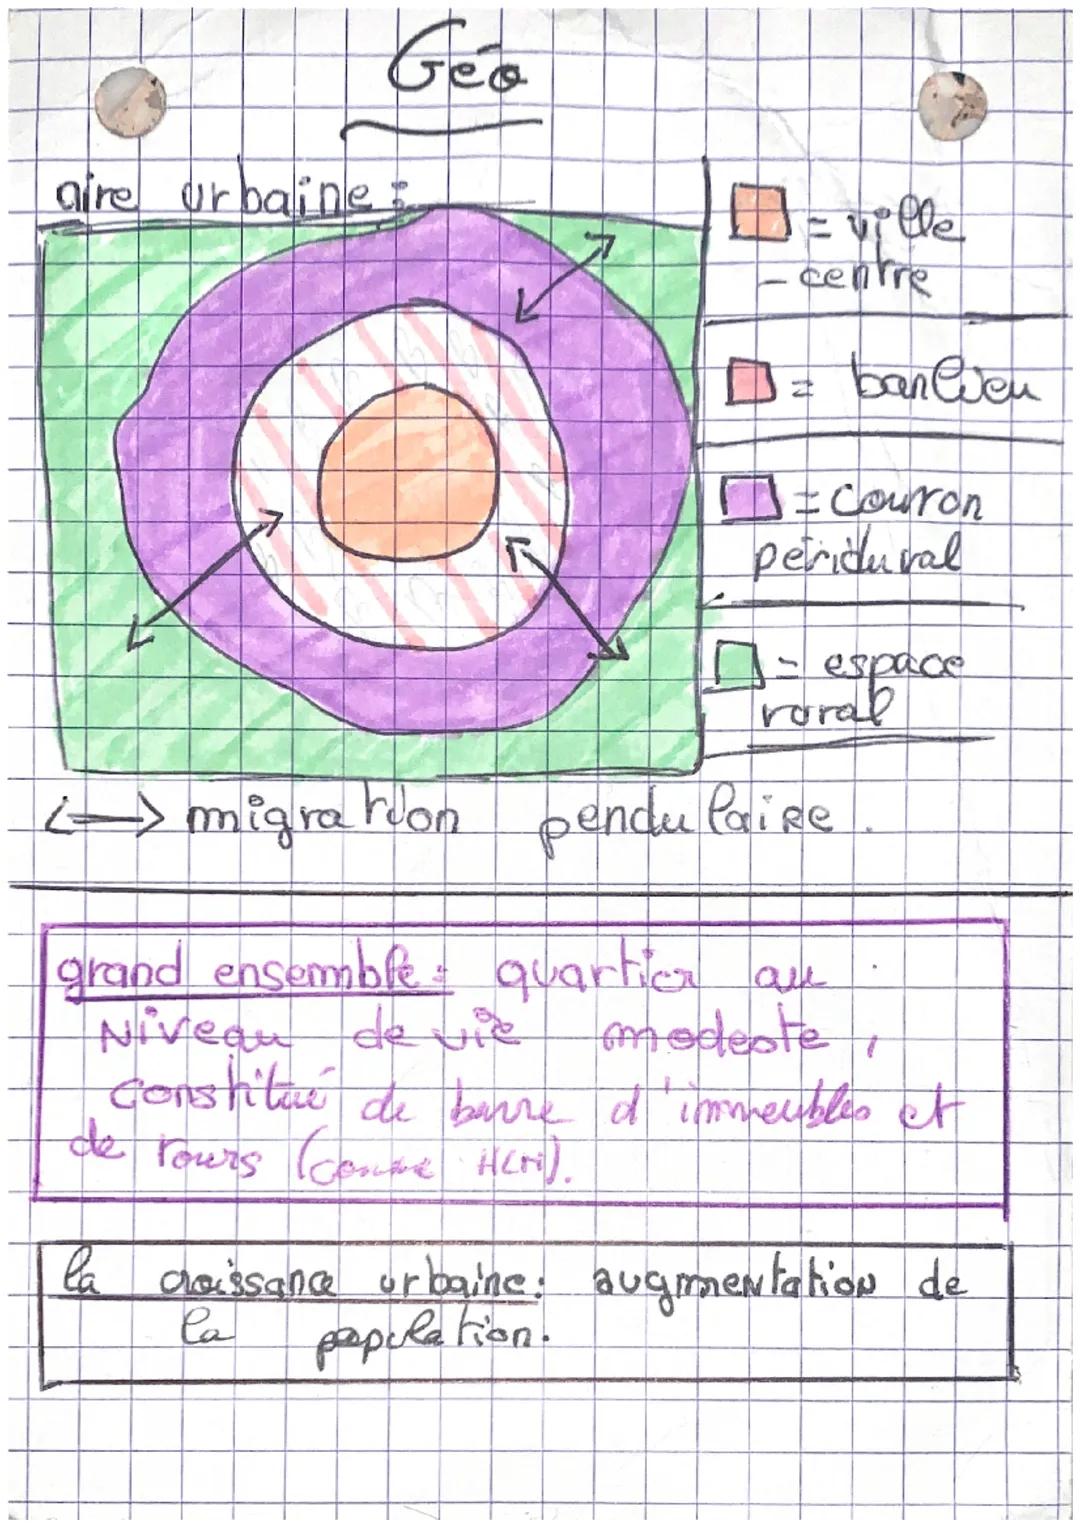 Géo
aire urbaine :
= ville
- centre
= banlieu
= couron
périduval
= espace
rural
<-> migration pendulaire.
grand ensemble : quartier au
Niveau de vie modeste,
constitué de barre d'immeubles et
de tours (comme HLM).
la croissance urbaine : augmentation de
la population.